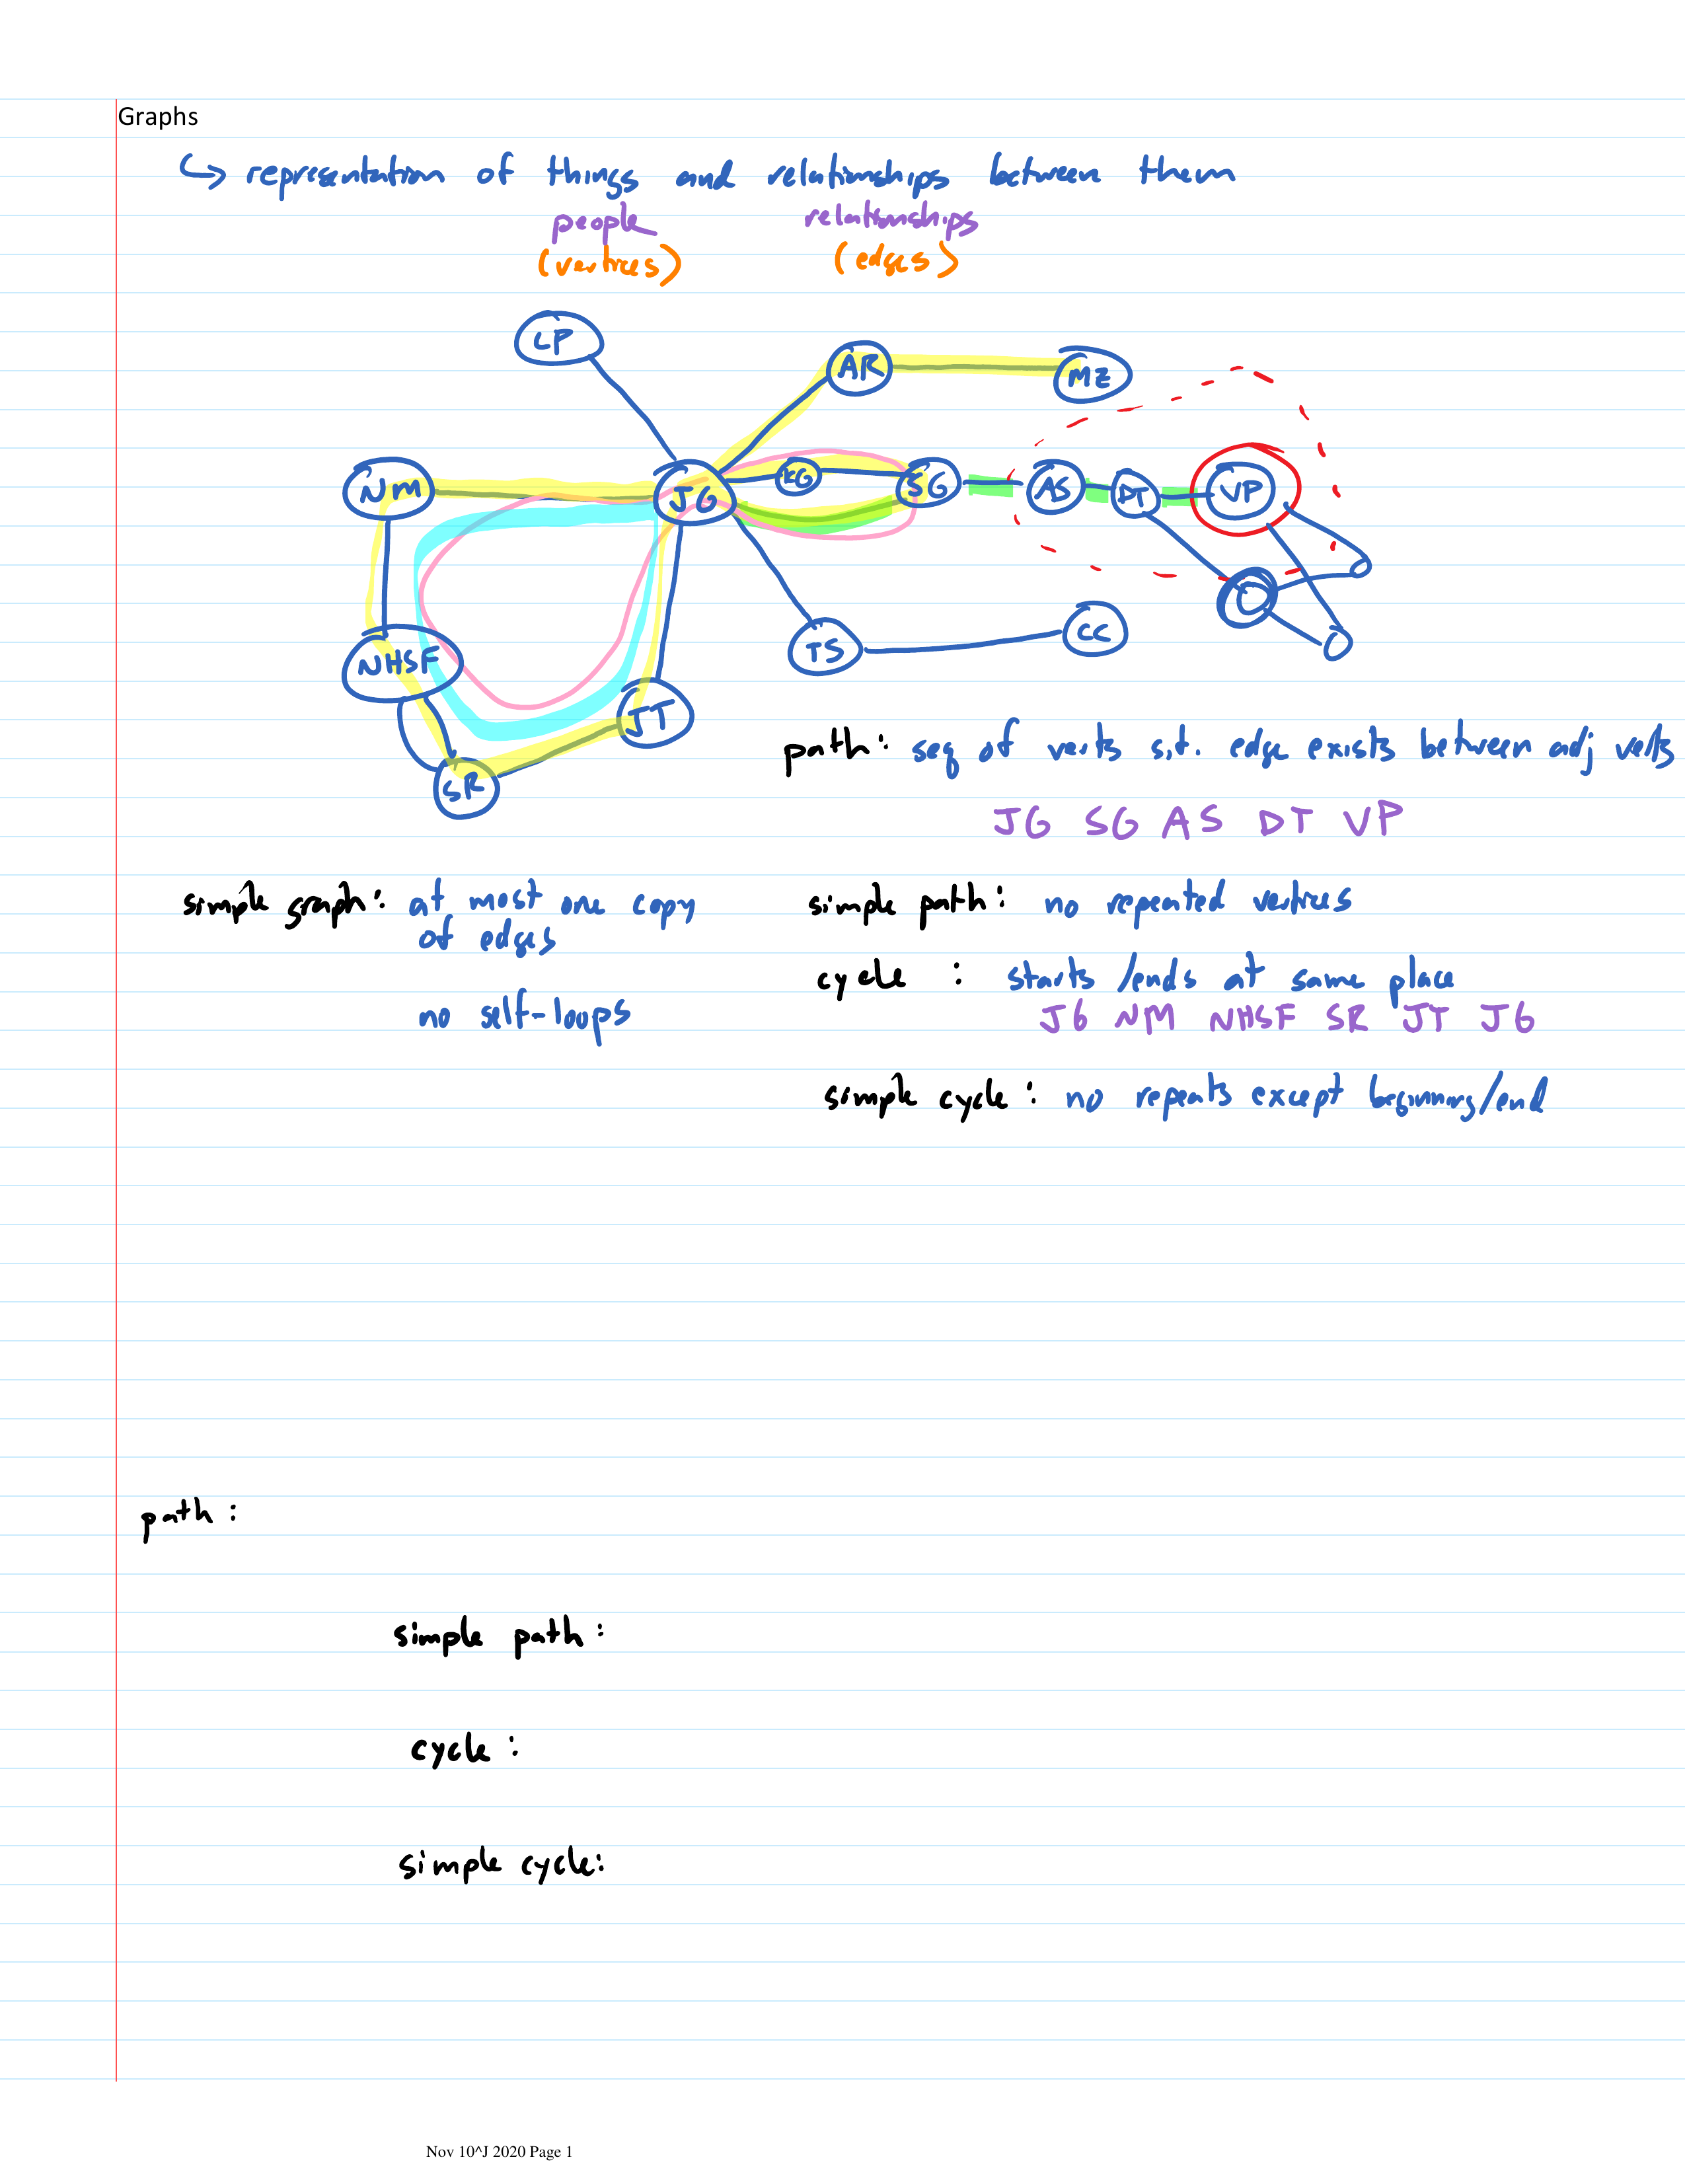 Graphs
↳ representation of things and relationships between them
people relationships
(vertices) (edges)
LP
AR
ME
NM
JG
KG
SG
AS
DT
VP
NHSF
TS
CC
JT
SR
path: seq of verts s.t. edge exists between adj verts
JG SG AS DT VP
simple graph: at most one copy
of edges
no self-loops
simple path: no repeated vertices
cycle : starts/ends at same place
JG NM NHSF SR JT JG
simple cycle: no repeats except beginning/end
path :
simple path :
cycle :
simple cycle:
Nov 10^J 2020 Page 1